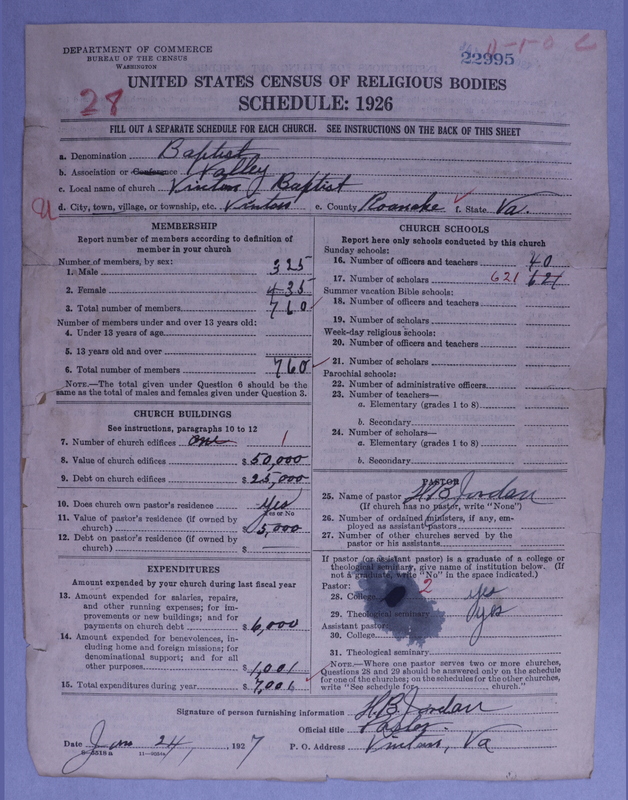 DEPARTMENT OF COMMERCE
BUREAU OF THE CENSUS
WASHINGTON
22995
28
UNITED STATES CENSUS OF RELIGIOUS BODIES
SCHEDULE: 1926
FILL OUT A SEPARATE SCHEDULE FOR EACH CHURCH. SEE INSTRUCTIONS ON THE BACK OF THIS SHEET
a. Denomination Baptist
b. Association or Conference Valley
c. Local name of church Vinton Baptist
d. City, town, village, or township, etc. Vinton e. County Roanoke f. State Va.
MEMBERSHIP
Report number of members according to definition of
member in your church
Number of members, by sex:
1. Male 325
2. Female 435
3. Total number of members 760
Number of members under and over 13 years old:
4. Under 13 years of age
5. 13 years old and over
6. Total number of members 760
NOTE.—The total given under Question 6 should be the
same as the total of males and females given under Question 3.
CHURCH BUILDINGS
See instructions, paragraphs 10 to 12
7. Number of church edifices one 1
8. Value of church edifices $ 50,000
9. Debt on church edifices $ 25,000
10. Does church own pastor's residence Yes
Yes or No
11. Value of pastor's residence (if owned by
church) $ 5,000
12. Debt on pastor's residence (if owned by
church) $ —
EXPENDITURES
Amount expended by your church during last fiscal year
13. Amount expended for salaries, repairs,
and other running expenses; for im-
provements or new buildings; and for
payments on church debt $ 6,000
14. Amount expended for benevolences, in-
cluding home and foreign missions; for
denominational support; and for all
other purposes $ 1,001
15. Total expenditures during year $ 7,001
CHURCH SCHOOLS
Report here only schools conducted by this church
Sunday schools:
16. Number of officers and teachers 40
17. Number of scholars 621 621
Summer vacation Bible schools:
18. Number of officers and teachers
19. Number of scholars
Week-day religious schools:
20. Number of officers and teachers
21. Number of scholars
Parochial schools:
22. Number of administrative officers
23. Number of teachers—
a. Elementary (grades 1 to 8)
b. Secondary
24. Number of scholars—
a. Elementary (grades 1 to 8)
b. Secondary
PASTOR
25. Name of pastor H B Jordan
(If church has no pastor, write "None")
26. Number of ordained ministers, if any, em-
ployed as assistant pastors
27. Number of other churches served by the
pastor or his assistants
If pastor (or assistant pastor) is a graduate of a college or
theological seminary, give name of institution below. (If
not a graduate, write "No" in the space indicated.)
Pastor: 2
28. College yes
29. Theological seminary yes
Assistant pastor:
30. College
31. Theological seminary
NOTE.—Where one pastor serves two or more churches,
Questions 28 and 29 should be answered only on the schedule
for one of the churches; on the schedules for the other churches,
write "See schedule for church."
Signature of person furnishing information H.B. Jordan
Official title Pastor.
Date Jan 24, 1927 P. O. Address Vinton, Va